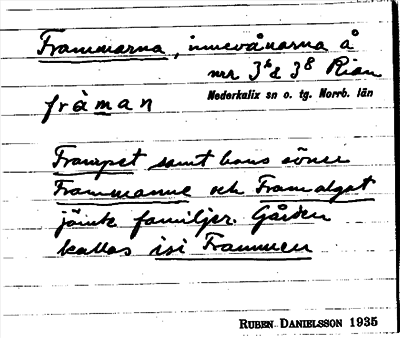 Frammarna, innevånarna å
nr 3⁶ & 3⁸ Rian
fràman
Nederkalix sn o. tg. Norrb. län
Frampet samt hans söner
Frammanne och Framalgot
jämte familjer. Gården
kallas isi Frammen
RUBEN DANIELSSON 1935